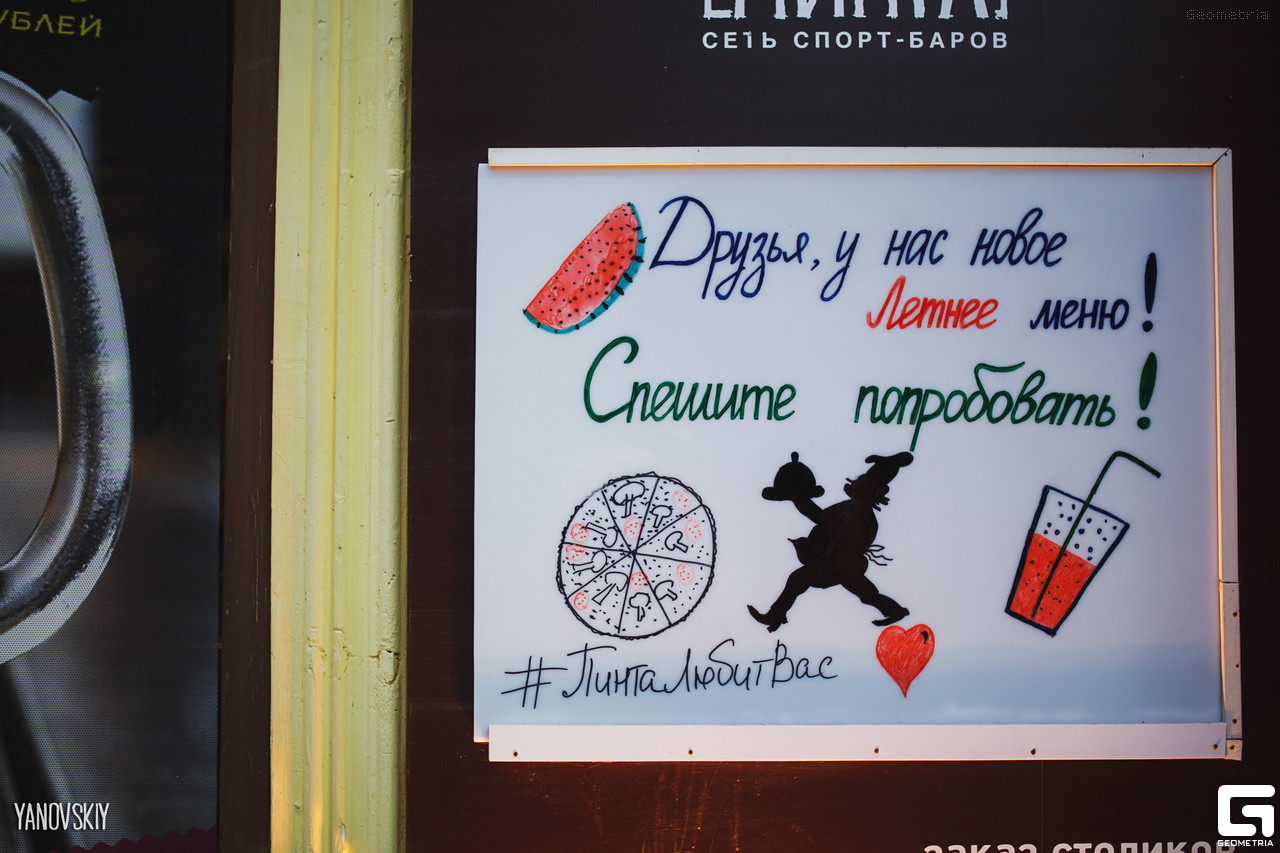 УБЛЕЙ
Geometria
СЕТЬ СПОРТ-БАРОВ
Друзья, у нас новое
Летнее меню!
Спешите попробовать!
#ПинтаЛюбитВас
YANOVSKIY
GEOMETRIA
заказ столиков